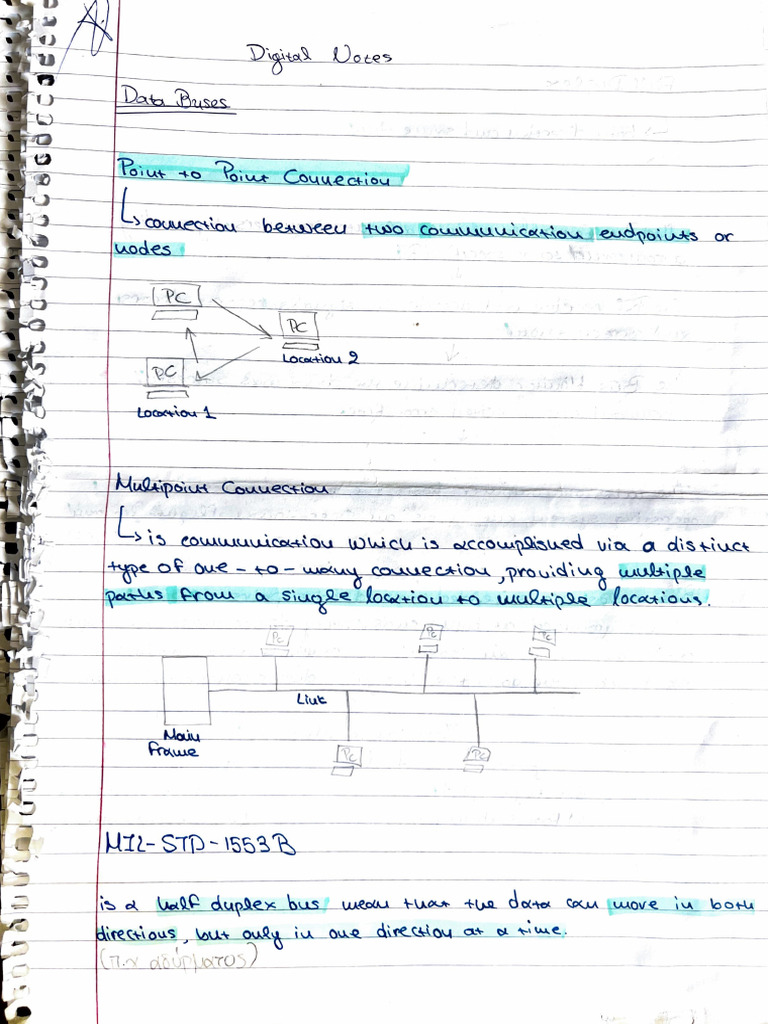 Digital Notes
Data Buses
Point to Point Connection
↳ connection between two communication endpoints or
nodes
PC
PC
Location 2
PC
Location 1
Multipoint Connection
↳ is communication which is accomplished via a distinct
type of one-to-many connection, providing multiple
paths from a single location to multiple locations.
PC
PC
PC
Link
Main
frame
PC
PC
MIL-STD-1553B
is a half duplex bus mean that the data can move in both
directions, but only in one direction at a time.
(π.χ ασύρματος)